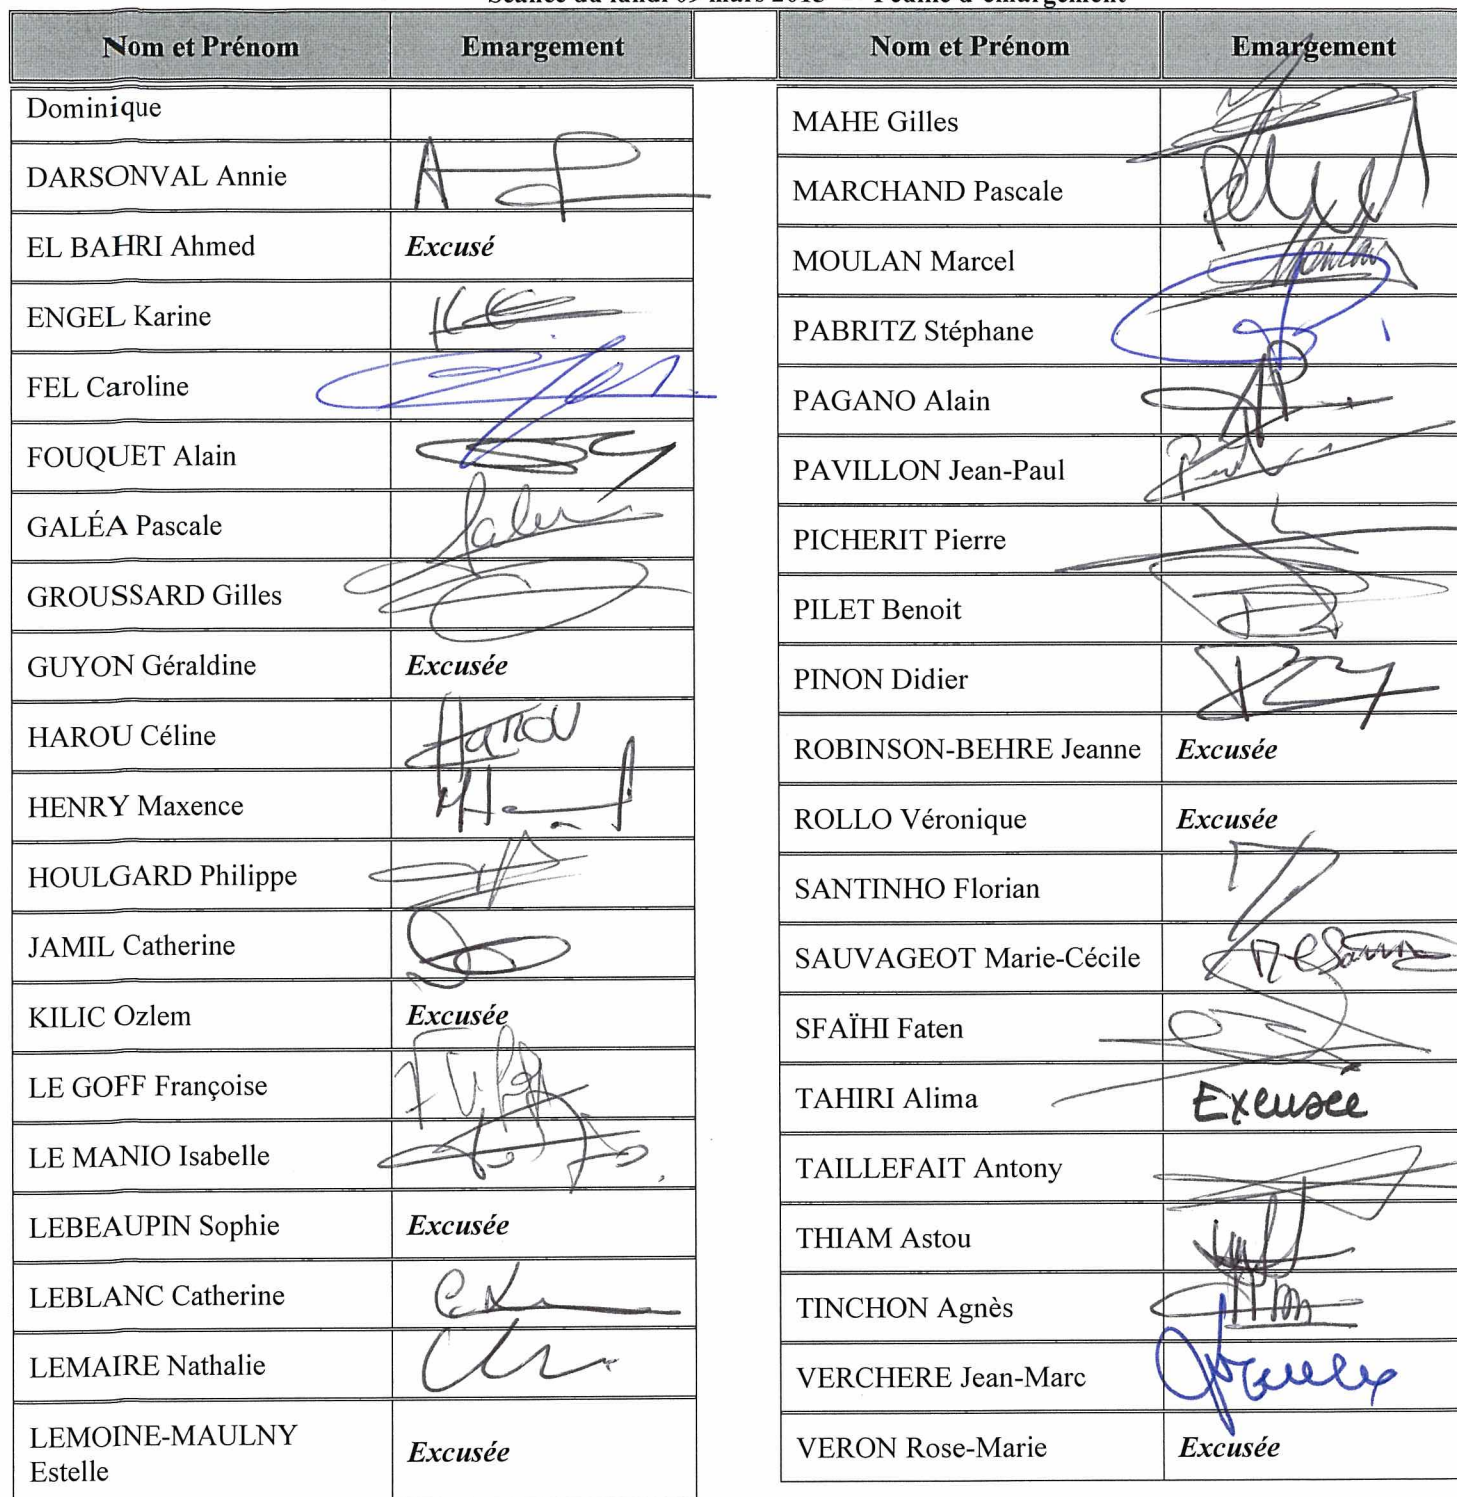 Séance du lundi 09 mars 2015 — Feuille d'émargement
Nom et Prénom Emargement
Dominique
DARSONVAL Annie
EL BAHRI Ahmed Excusé
ENGEL Karine
FEL Caroline
FOUQUET Alain
GALÉA Pascale
GROUSSARD Gilles
GUYON Géraldine Excusée
HAROU Céline Harou
HENRY Maxence
HOULGARD Philippe
JAMIL Catherine
KILIC Ozlem Excusée
LE GOFF Françoise
LE MANIO Isabelle
LEBEAUPIN Sophie Excusée
LEBLANC Catherine
LEMAIRE Nathalie
LEMOINE-MAULNY
Estelle Excusée
Nom et Prénom Emargement
MAHE Gilles
MARCHAND Pascale
MOULAN Marcel
PABRITZ Stéphane
PAGANO Alain
PAVILLON Jean-Paul
PICHERIT Pierre
PILET Benoit
PINON Didier
ROBINSON-BEHRE Jeanne Excusée
ROLLO Véronique Excusée
SANTINHO Florian
SAUVAGEOT Marie-Cécile
SFAÏHI Faten
TAHIRI Alima Excusée
TAILLEFAIT Antony
THIAM Astou
TINCHON Agnès
VERCHERE Jean-Marc
VERON Rose-Marie Excusée